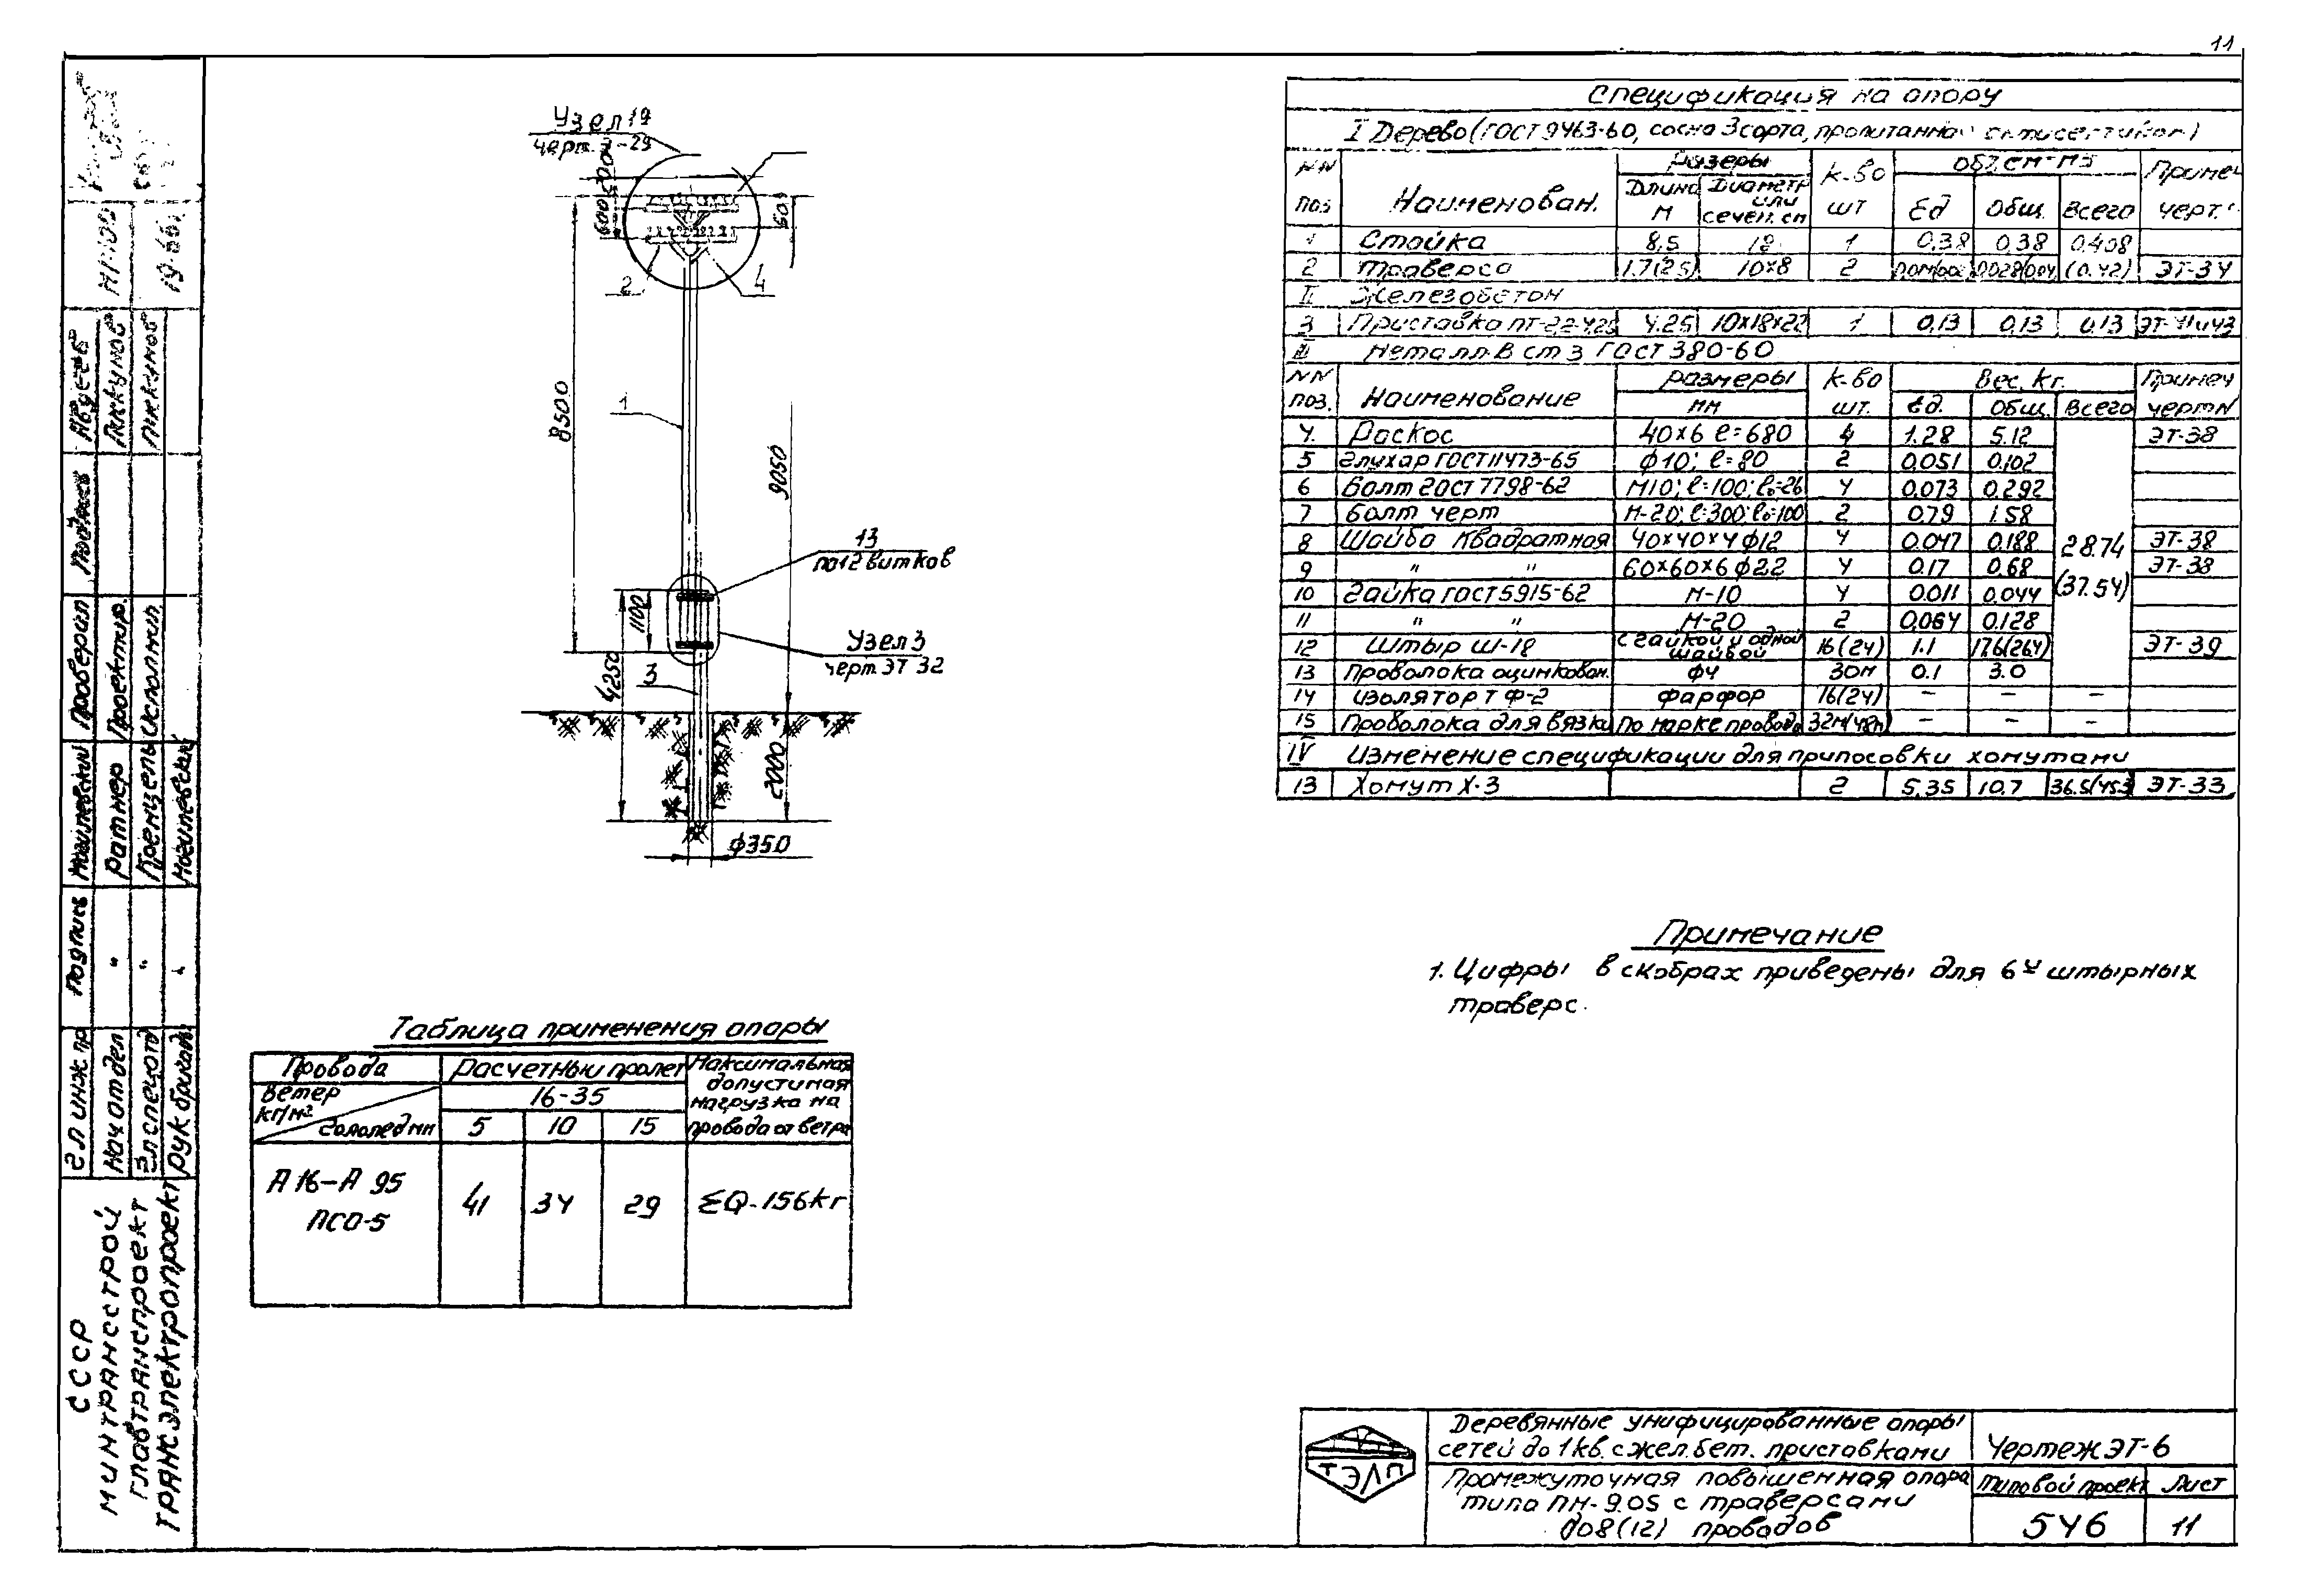 11
Узел 19
черт. Э-29
600
500
60
2
4
8500
1
9050
13
по 12 витков
1100
Узел 3
черт. ЭТ 32
4250
3
2000
ф350
Спецификация на опору
I Дерево (ГОСТ 9463-60, сосна 3 сорта, пропитанная антисептиком)
NN поз Наименован. Размеры Длина м Диаметр или сечен. см К-во шт Объем-м3 Ед Общ. Всего Примеч черт.
1 Стойка 8,5 18 1 0.38 0.38 0.408
2 Траверса 1.7(2.5) 10х8 2 (0.42) ЭТ-34
II Железобетон
3 Приставка ПТ-2.2-4.25 4.25 10х18х22 1 0,13 0,13 0,13 ЭТ-41и43
III Металл. В ст 3 ГОСТ 380-60
NN поз. Наименование Размеры мм К-во шт. Вес. кг. Ед. Общ. Всего Примеч черт N
4. Раскос 40х6 ℓ=680 4 1.28 5.12 ЭТ-38
5 Глухар ГОСТ 11473-65 ф10; ℓ=80 2 0,051 0,102
6 Болт ГОСТ 7798-62 М10; ℓ=100; ℓ₀=26 4 0,073 0,292
7 Болт черт М-20; ℓ=300; ℓ₀=100 2 0.79 1.58
8 Шайба квадратная 40х40х4 ф12 4 0.047 0.188 28.74 ЭТ-38
9 " " 60х60х6 ф22 4 0.17 0.68 (37.54) ЭТ-38
10 Гайка ГОСТ 5915-62 М-10 4 0.011 0,044
11 " " М-20 2 0,064 0.128
12 Штыр Ш-18 с гайкой и одной шайбой 16(24) 1.1 17.6(26.4) ЭТ-39
13 Проволока оцинкован. ф4 30м 0.1 3.0
14 Изолятор ТФ-2 фарфор 16(24) – – –
15 Проволока для вязки по марке провода 32м(48м) – – –
IV Изменение спецификации для припосовки хомутами
13 Хомут Х-3 2 5,35 10,7 36.5(45.3) ЭТ-33
Примечание
1. Цифры в скобрах приведены для 6х штырных
траверс.
Таблица применения опоры
Провода Расчетный пролет Максимальная допустимая нагрузка на провода от ветра
Ветер кг/м² 16-35
Гололед мм 5 10 15
А 16-А 95 41 34 29 ΣQ-156кг
ПСО-5
Деревянные унифицированные опоры
сетей до 1 кв. с жел. бет. приставками
Чертеж ЭТ-6
ТЭЛП
Промежуточная повышенная опора
типа ПН-9.05 с траверсами
до 8(12) проводов
Типовой проект Лист
546 11
СССР
Минтрансстрой
Главтранспроект
Трансэлектропроект
Гл инж. пр Подпись Могилевский Подпись
Нач отдел " Ратнер Проектир.
Гл спецотд " Кренцель Исполнил.
Рук бригад " Могилевский 19-66г
Проверил